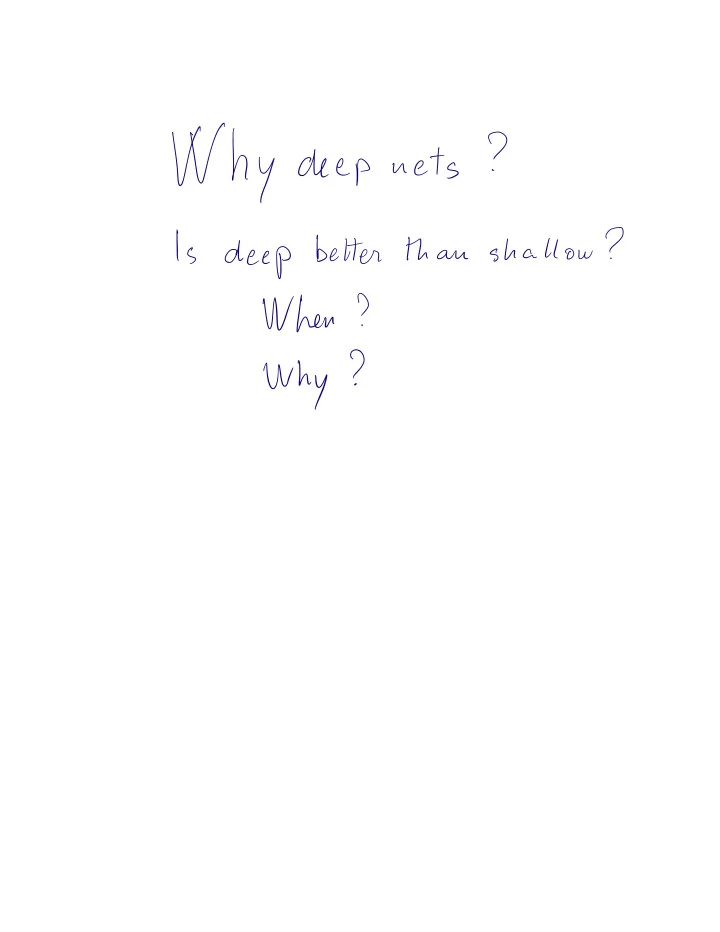 Why deep nets ?
Is deep better than shallow ?
When ?
Why ?